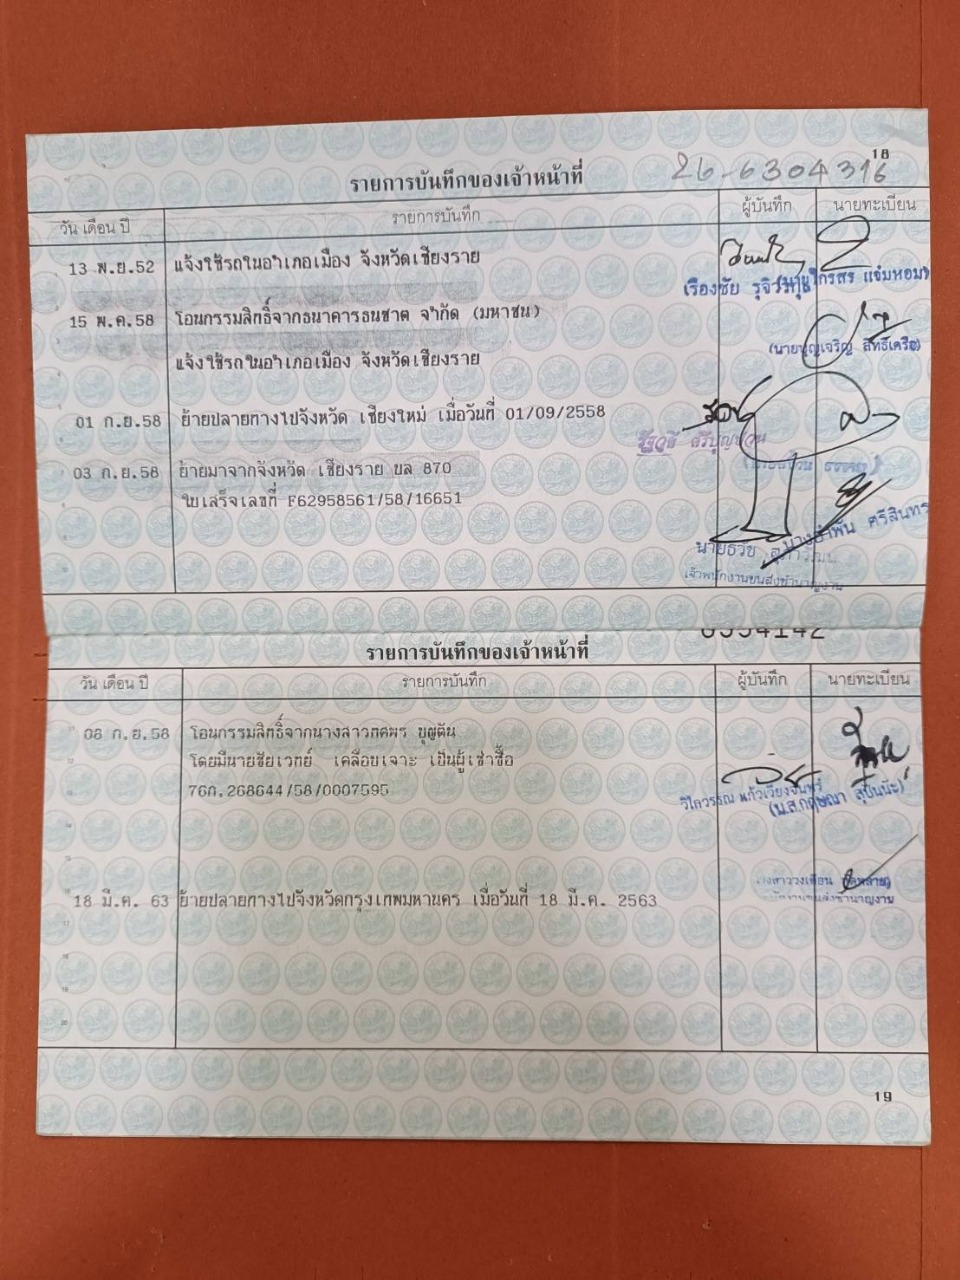 18
26-6304316
รายการบันทึกของเจ้าหน้าที่
วัน เดือน ปี รายการบันทึก ผู้บันทึก นายทะเบียน
13 พ.ย.52 แจ้งใช้รถในอำเภอเมือง จังหวัดเชียงราย
เรืองชัย ไกรสร แจ่มหอม)
15 พ.ค.58 โอนกรรมสิทธิ์จากธนาคารธนชาต จำกัด (มหาชน)
(นายบุญเจริญ สิทธิ์เครือ)
แจ้งใช้รถในอำเภอเมือง จังหวัดเชียงราย
01 ก.ย.58 ย้ายปลายทางไปจังหวัด เชียงใหม่ เมื่อวันที่ 01/09/2558
03 ก.ย.58 ย้ายมาจากจังหวัด เชียงราย ขล 870
ใบเสร็จเลขที่ F62958561/58/16651
นางอำพัน ศรีสินทร
นายธวัช
เจ้าพนักงานขนส่งชำนาญงาน
0554142
รายการบันทึกของเจ้าหน้าที่
วัน เดือน ปี รายการบันทึก ผู้บันทึก นายทะเบียน
08 ก.ย.58 โอนกรรมสิทธิ์จากนางสาวทศพร บุญตัน
โดยมีนายชัยเวทย์ เคลือบเจาะ เป็นผู้เช่าซื้อ
76ก.268644/58/0007595
วิไลวรรณ แก้วเวียงจันทร์
(น.ส.กฤษณา สุปันนะ)
18 มี.ค. 63 ย้ายปลายทางไปจังหวัดกรุงเทพมหานคร เมื่อวันที่ 18 มี.ค. 2563
19